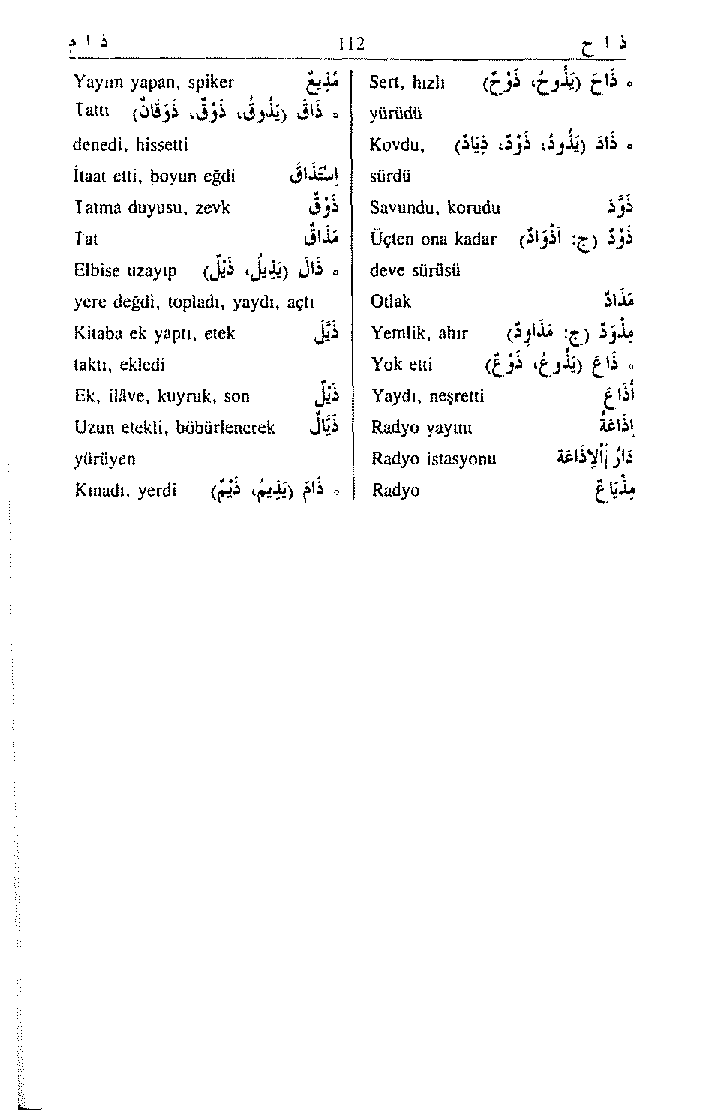 ذ ا ح 112 ذ ا م
◦ ذَاحَ (يَذُوحُ، ذَوْحٌ) Sert, hızlı
yürüdü
◦ ذَادَ (يَذُودُ، ذَوْدٌ، ذِيَادٌ) Kovdu,
sürdü
ذَوَّدَ Savundu, korudu
ذَوْدٌ (ج: أَذْوَادٌ) Üçten ona kadar
deve sürüsü
مَذَادٌ Otlak
مِذْوَدٌ (ج: مَذَاوِدُ) Yemlik, ahır
◦ ذَاعَ (يَذُوعُ، ذَوْعٌ) Yok etti
أَذَاعَ Yaydı, neşretti
إِذَاعَةٌ Radyo yayını
دَارُ اْلإِذَاعَة Radyo istasyonu
مِذْيَاعٌ Radyo
مُذِيعٌ Yayım yapan, spiker
◦ ذَاقَ (يَذُوقُ، ذَوْقٌ، ذَوَقَانٌ) Tattı
denedi, hissetti
إِسْتَذَاقَ İtaat etti, boyun eğdi
ذَوْقٌ Tatma duyusu, zevk
مَذَاقٌ Tat
◦ ذَالَ (يَذِيلُ، ذَيْلٌ) Elbise uzayıp
yere değdi, topladı, yaydı, açtı
ذَيَّلَ Kitaba ek yaptı, etek
taktı, ekledi
ذَيْلٌ Ek, ilâve, kuyruk, son
ذَيَّالٌ Uzun etekli, böbürlenerek
yürüyen
◦ ذَامَ (يَذِيمُ، ذَيْمٌ) Kınadı, yerdi